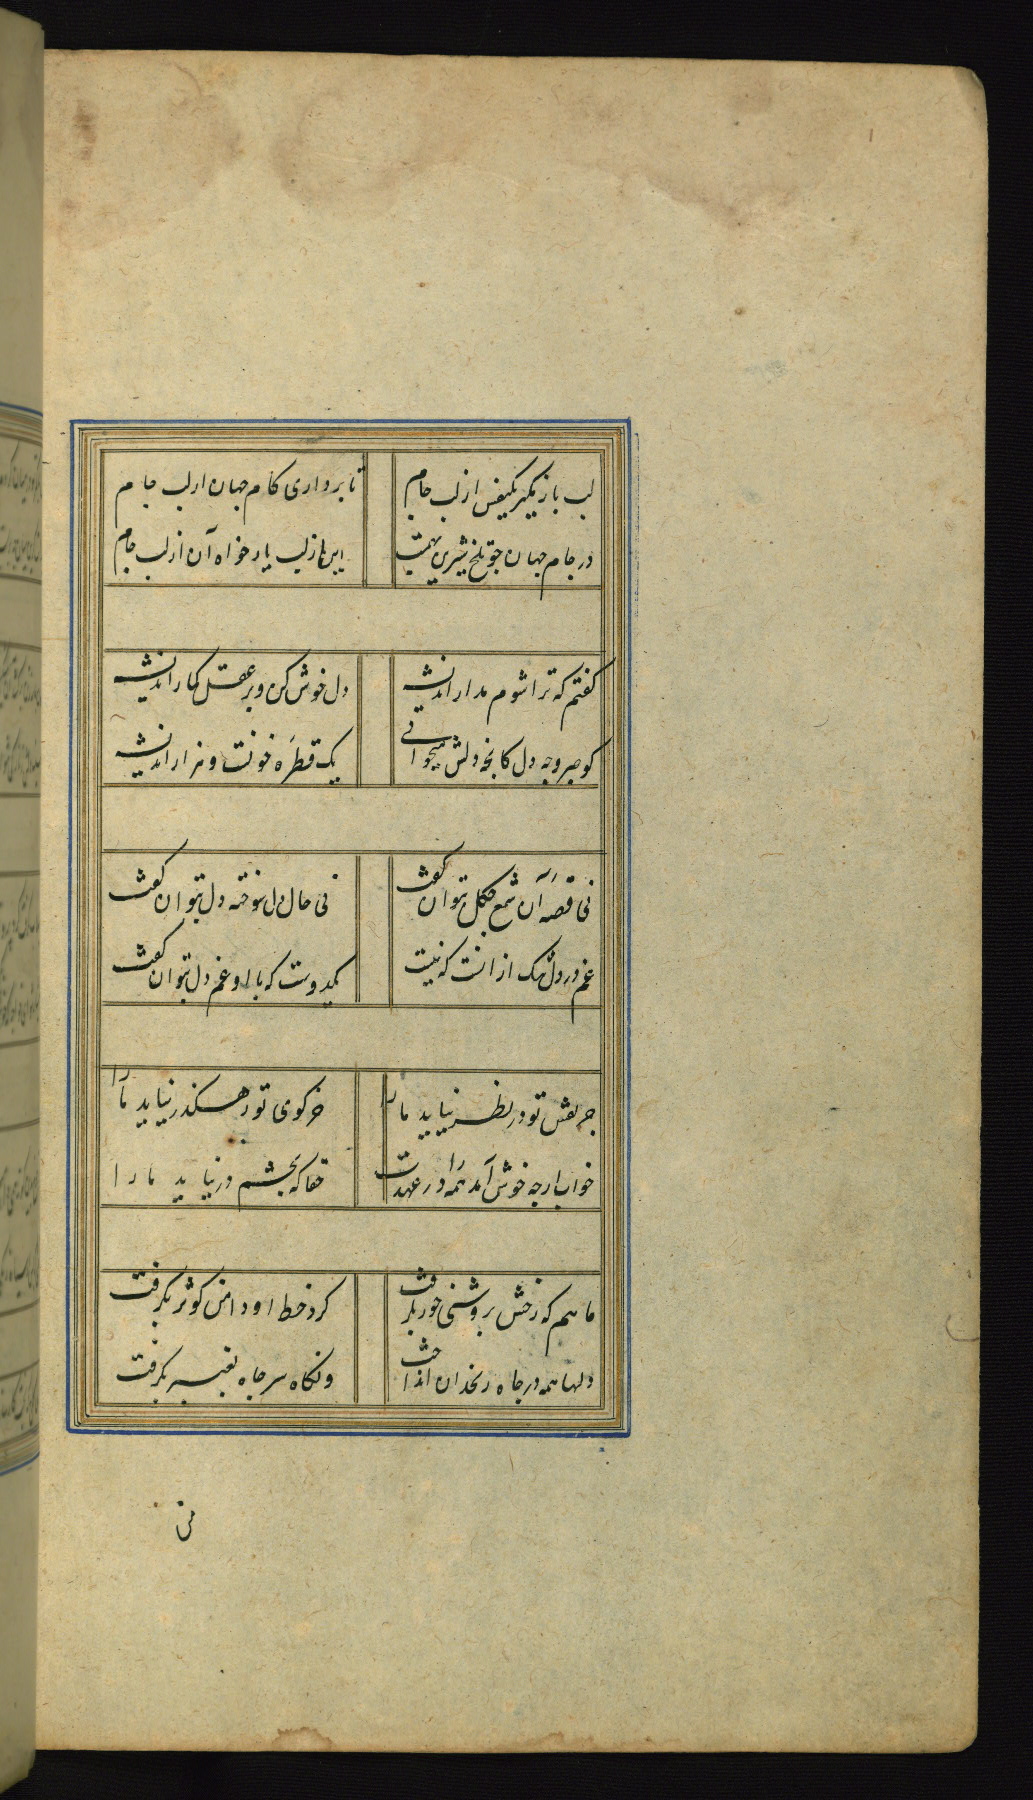 لب باز مگیر یکنفس از لب جام
تا برداری کام جهان از لب جام
در جام جهان چو تلخ شیرین بهمست
این از لب یار خواه آن از لب جام
گفتم که ترا شوم مدار اندیشه
دل خوش کن و بر عقل گمار اندیشه
کو صبر و چه دل کانچه دلش میخوانی
یک قطره خونست و هزار اندیشه
نی قصه آن شمع چگل بتوان گفت
نی حال دل سوخته دل بتوان گفت
غم در دل تنک از انست که نیست
یکدوست که با او غم دل بتوان گفت
جز نقش تو در نظر نیاید ما را
جز کوی تو رهگذر نیاید ما را
خواب ارچه خوش آمد همه را در عهدت
حقا که بچشم در نیاید ما را
ماهم که رخش روشنی خور بگرفت
گرد خط او دامن کوثر بگرفت
دلها همه در چاه زنخدان انداخت
وانگاه سر چاه بعنبر بگرفت
نی